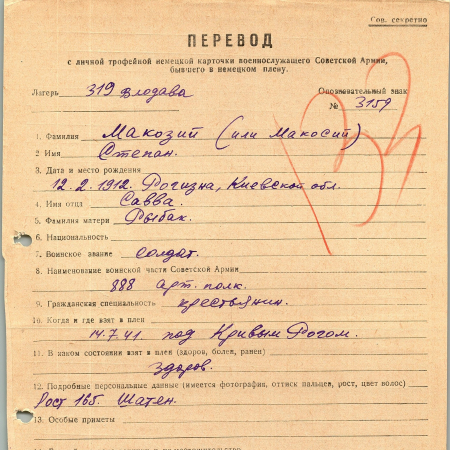 Сов. секретно
ПЕРЕВОД
с личной трофейной немецкой карточки военнослужащего Советской Армии,
бывшего в немецком плену.
Лагерь 319 Влодава Опознавательный знак
№ 3159
1. Фамилия Макозий (или Макосий)
2 Имя Степан.
3. Дата и место рождения
12.2.1912. Рогизна, Киевской обл.
4. Имя отца Савва.
5. Фамилия матери Рыбак.
6. Национальность
7. Воинское звание солдат.
8. Наименование воинской части Советской Армии
888 арт. полк.
9. Гражданская специальность крестьянин.
10. Когда и где взят в плен
14.7.41. под Кривым Рогом.
11. В каком состоянии взят в плен (здоров, болен, ранен)
здоров.
12. Подробные персональные данные (имеется фотография, оттиск пальцев, рост, цвет волос)
Рост 165. Шатен.
13. Особые приметы